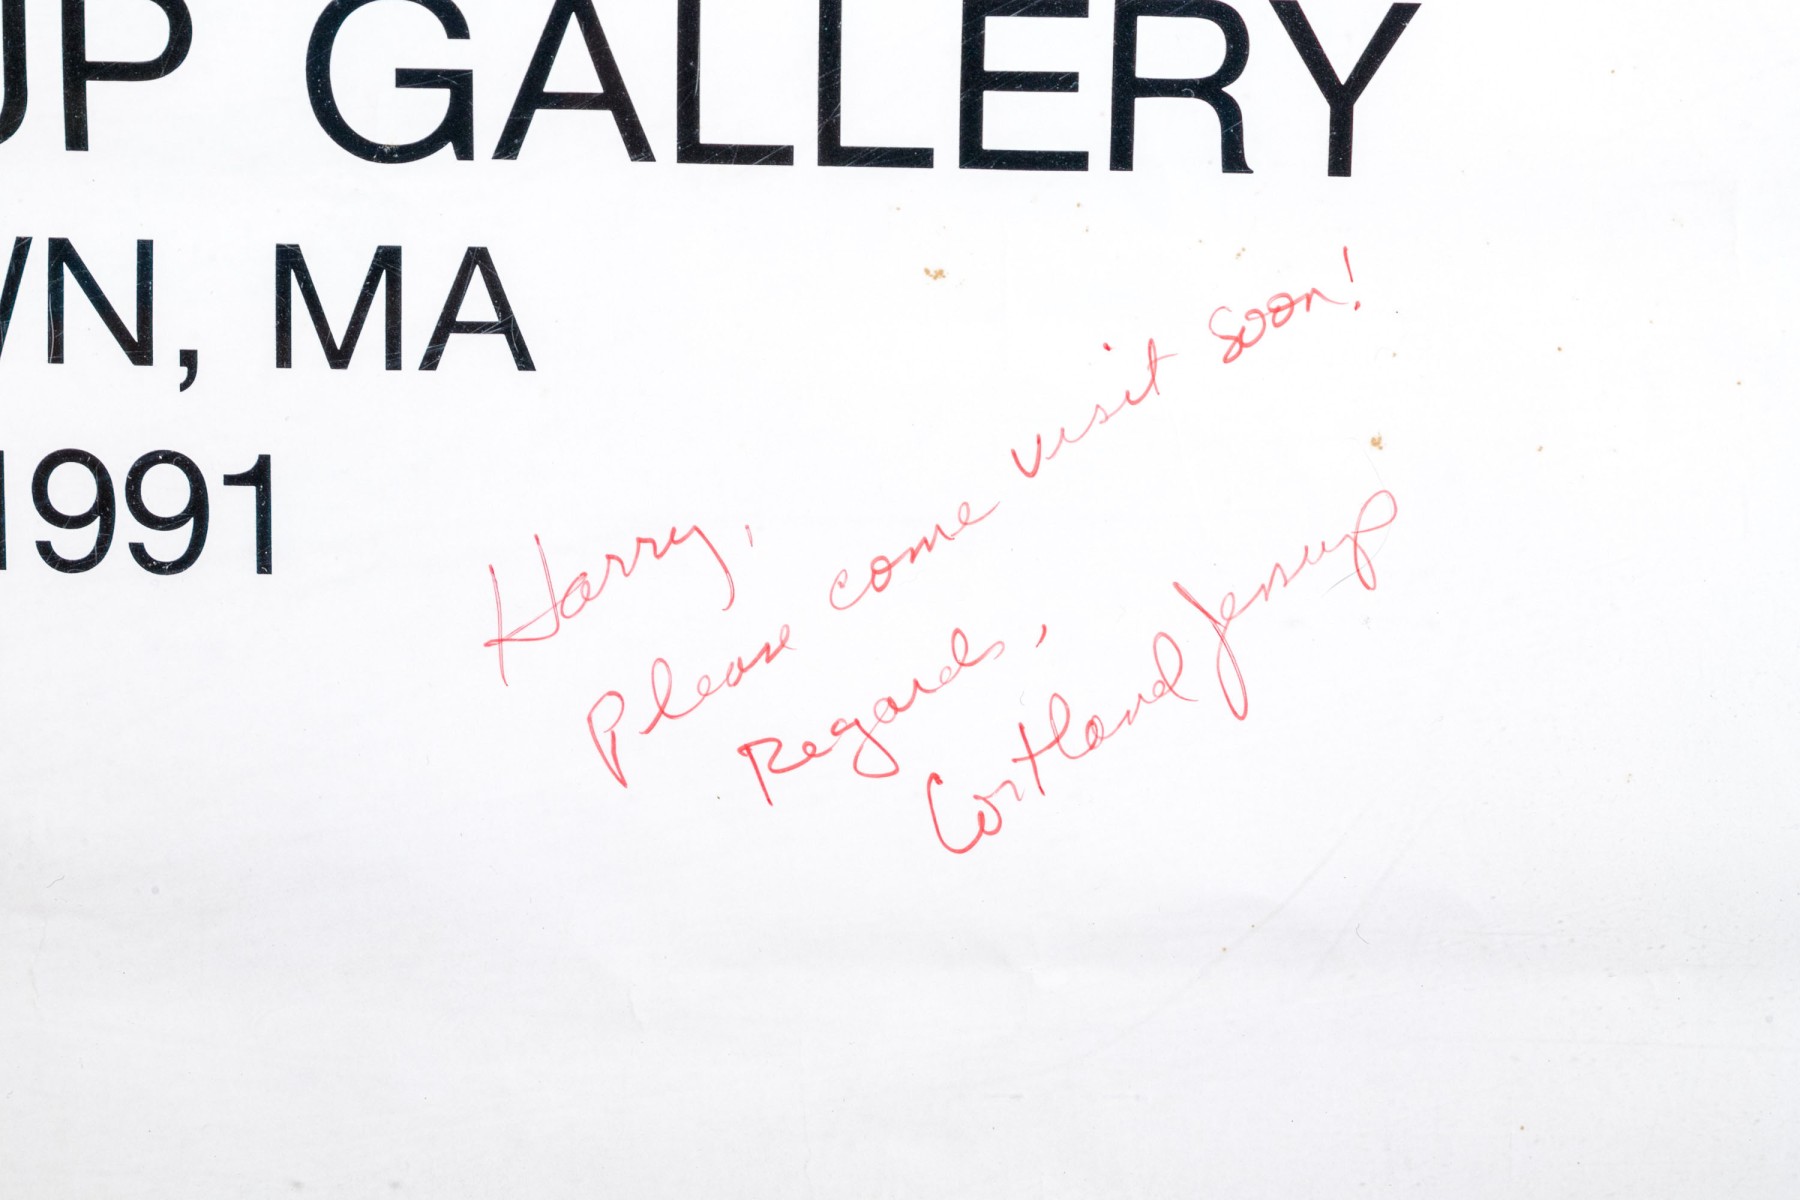 UP GALLERY
WN, MA
1991
Harry,
Please come visit soon!
Regards,
Cortland Jessup